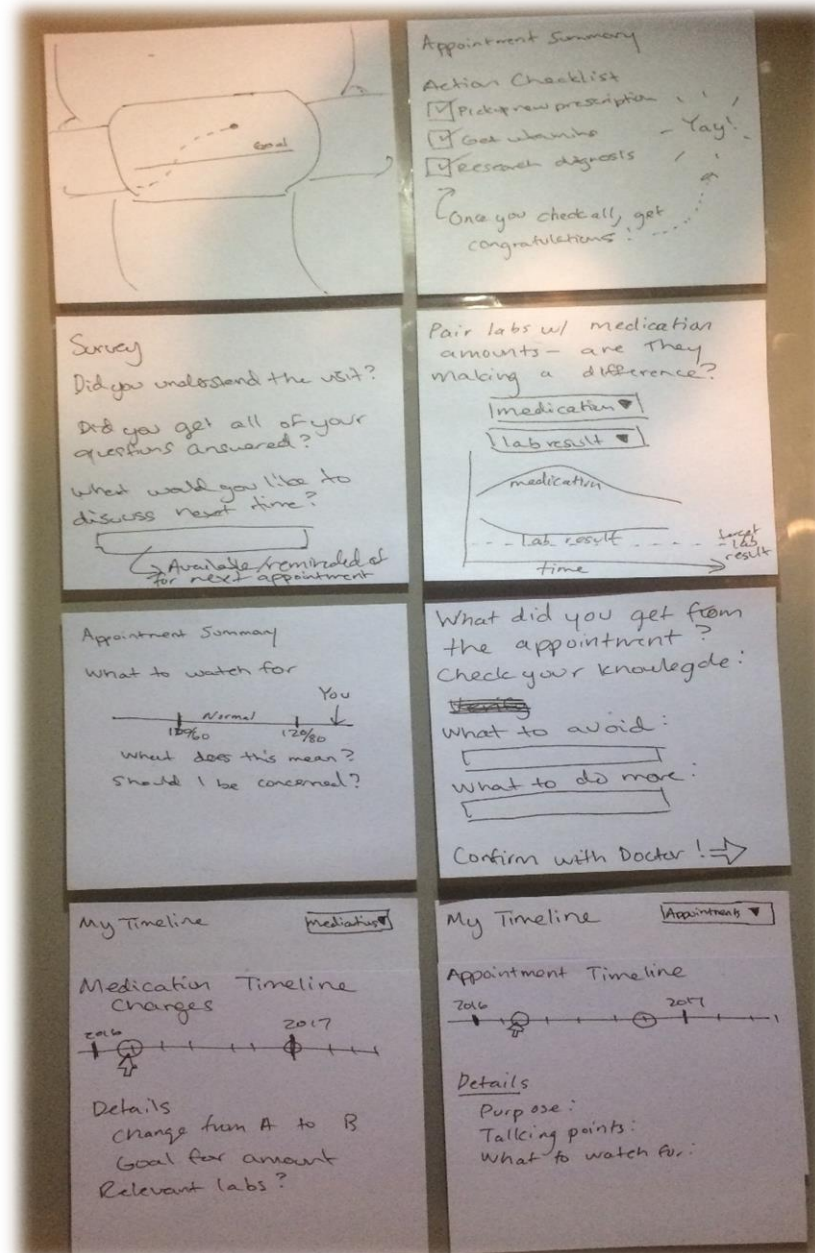 Goal
Appointment Summary
Action Checklist
Pick up new prescription
Get vitamins
Research diagnosis
Yay!
Once you check all, get
congratulations!
Survey
Did you understand the visit?
Did you get all of your
questions answered?
What would you like to
discuss next time?
Available/reminded of
for next appointment
Pair labs w/ medication
amounts - are they
making a difference?
medication ▼
lab result ▼
medication
lab result
target
lab
result
time
Appointment Summary
What to watch for
You
Normal
120/80
What does this mean?
Should I be concerned?
What did you get from
the appointment?
Check your knowlegde:
What to avoid:
What to do more:
Confirm with Doctor!
My Timeline
Medication Timeline
Changes
2016
2017
Details
Change from A to B
Goal for amount
Relevant labs?
My Timeline
Appointments ▼
Appointment Timeline
2016
2017
Details
Purpose:
Talking points:
What to watch for: